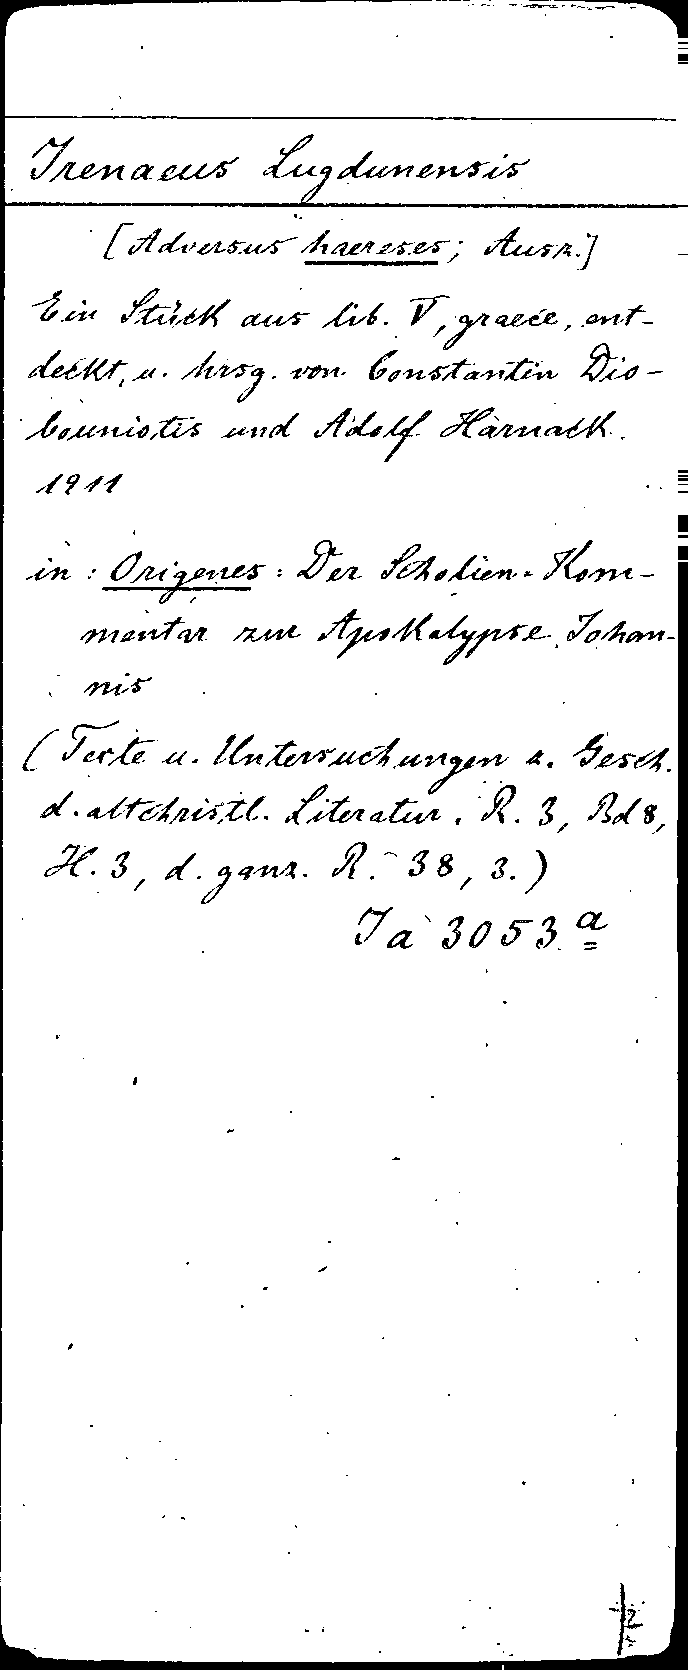 Irenaeus Lugdunensis
[Adversus haereses; Ausz.]
Ein Stück aus lib. V, graece, ent-
deckt, u. hrsg. von Constantin Dio-
bouniotis und Adolf Harnack.
1911
in: Origenes: Der Scholien-Kom-
mentar zur Apokalypse Johan-
nis
(Texte u. Untersuchungen z. Gesch.
d. altchristl. Literatur. R. 3, Bd 8,
H. 3, d. ganz. R. 38, 3.)
Ia 3053 a